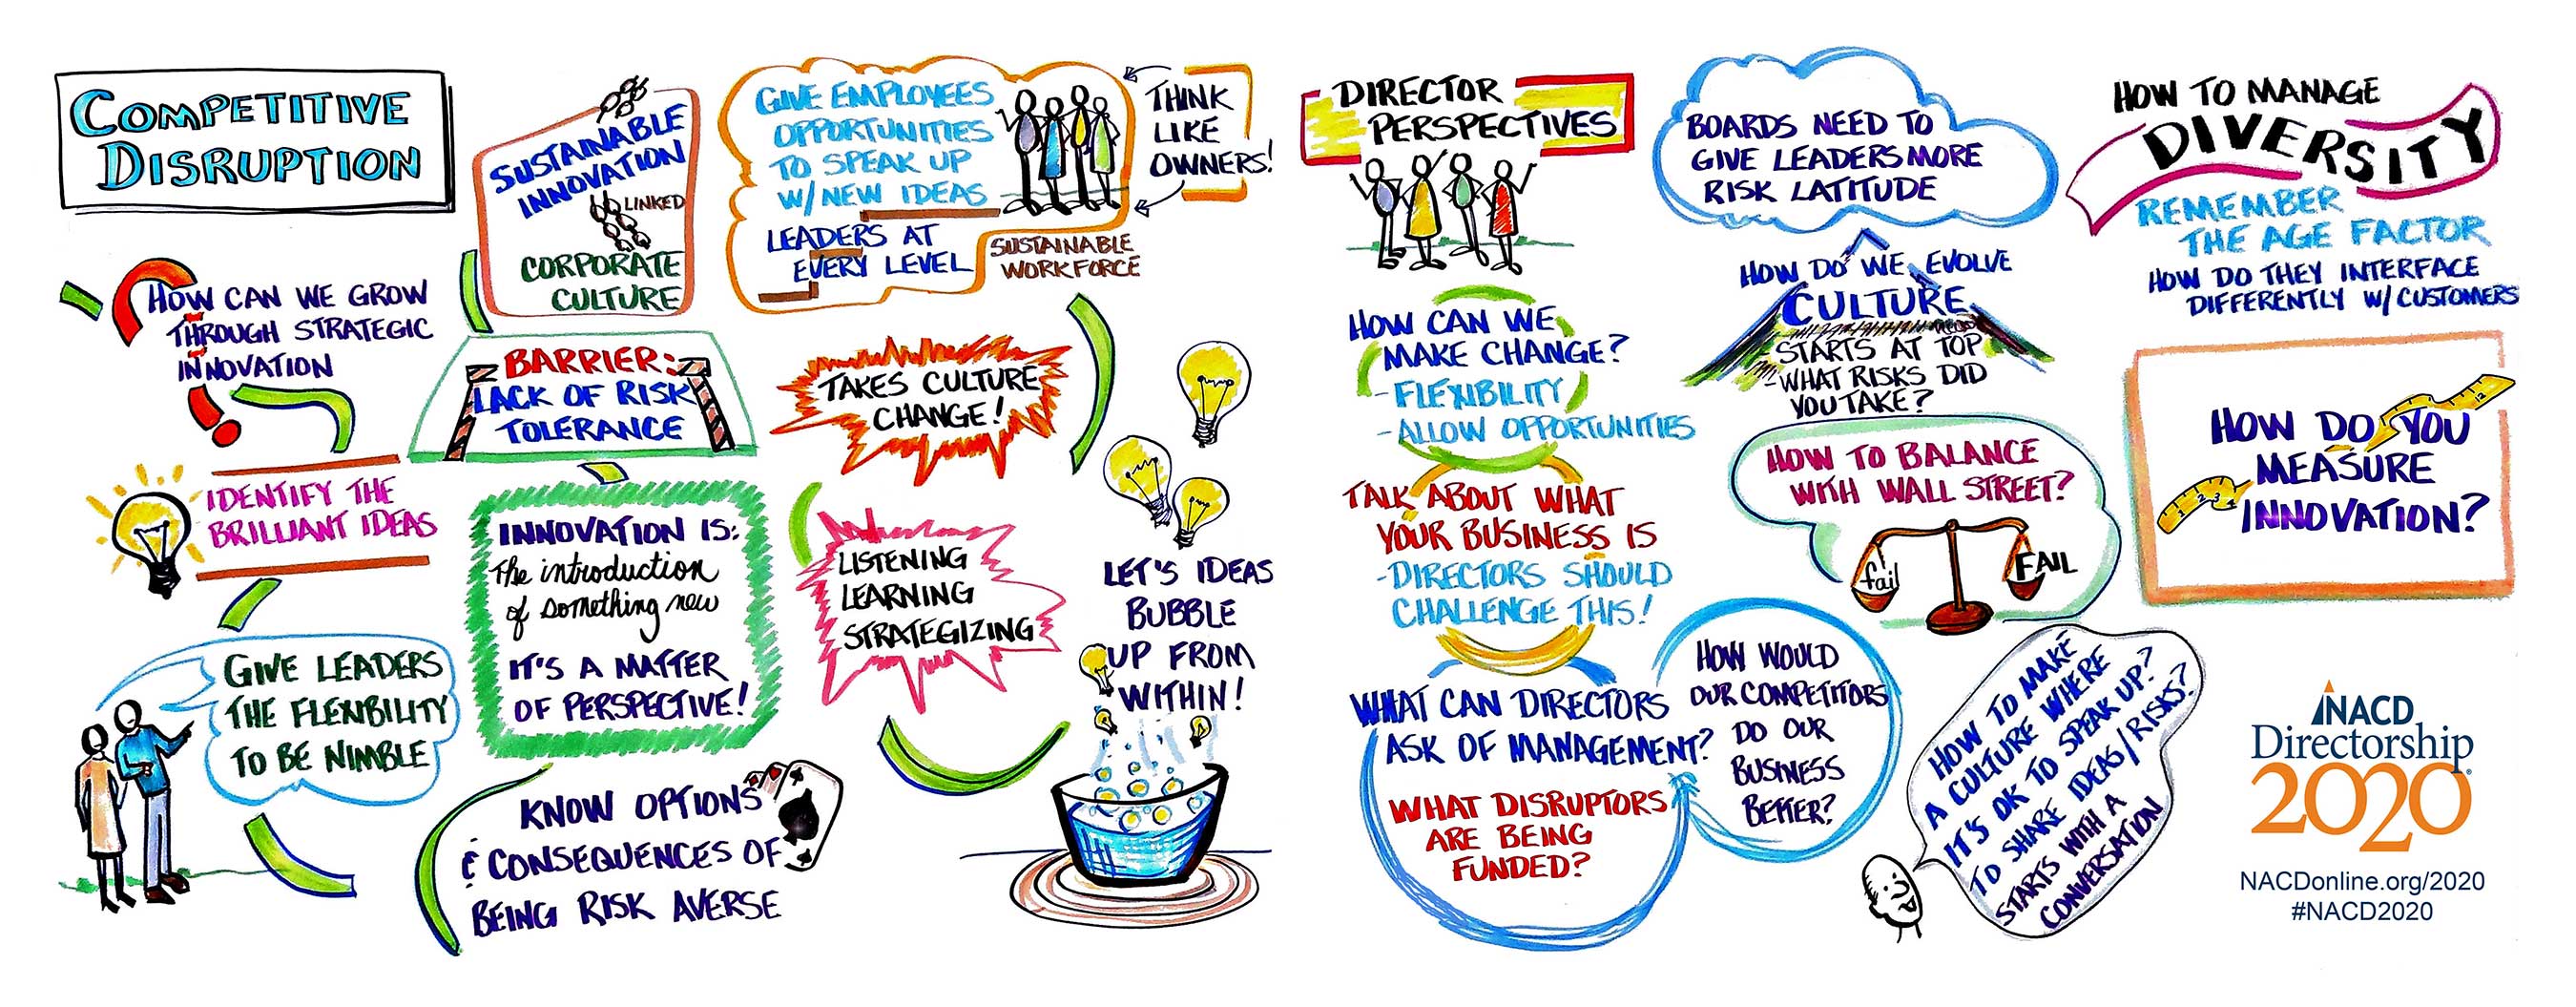 COMPETITIVE
DISRUPTION
HOW CAN WE GROW
THROUGH STRATEGIC
INNOVATION
IDENTIFY THE
BRILLIANT IDEAS
GIVE LEADERS
THE FLEXIBILITY
TO BE NIMBLE
SUSTAINABLE
INNOVATION
LINKED
CORPORATE
CULTURE
BARRIER:
LACK OF RISK
TOLERANCE
INNOVATION IS:
the introduction
of something new
IT'S A MATTER
OF PERSPECTIVE!
KNOW OPTIONS
& CONSEQUENCES OF
BEING RISK AVERSE
GIVE EMPLOYEES
OPPORTUNITIES
TO SPEAK UP
W/ NEW IDEAS
LEADERS AT
EVERY LEVEL
SUSTAINABLE
WORKFORCE
THINK
LIKE
OWNERS!
TAKES CULTURE
CHANGE!
LISTENING
LEARNING
STRATEGIZING
LET'S IDEAS
BUBBLE
UP FROM
WITHIN!
DIRECTOR
PERSPECTIVES
HOW CAN WE
MAKE CHANGE?
- FLEXIBILITY
- ALLOW OPPORTUNITIES
TALK ABOUT WHAT
YOUR BUSINESS IS
- DIRECTORS SHOULD
CHALLENGE THIS!
WHAT CAN DIRECTORS
ASK OF MANAGEMENT?
WHAT DISRUPTORS
ARE BEING
FUNDED?
HOW WOULD
OUR COMPETITORS
DO OUR
BUSINESS
BETTER?
BOARDS NEED TO
GIVE LEADERS MORE
RISK LATITUDE
HOW DO WE EVOLVE
CULTURE
STARTS AT TOP
- WHAT RISKS DID
YOU TAKE?
HOW TO BALANCE
WITH WALL STREET?
fail
FAIL
HOW TO MAKE
A CULTURE WHERE
IT'S OK TO SPEAK UP?
TO SHARE IDEAS/RISKS?
STARTS WITH A
CONVERSATION
HOW TO MANAGE
DIVERSITY
REMEMBER
THE AGE FACTOR
HOW DO THEY INTERFACE
DIFFERENTLY W/ CUSTOMERS
HOW DO YOU
MEASURE
INNOVATION?
NACD
Directorship
2020®
NACDonline.org/2020
#NACD2020